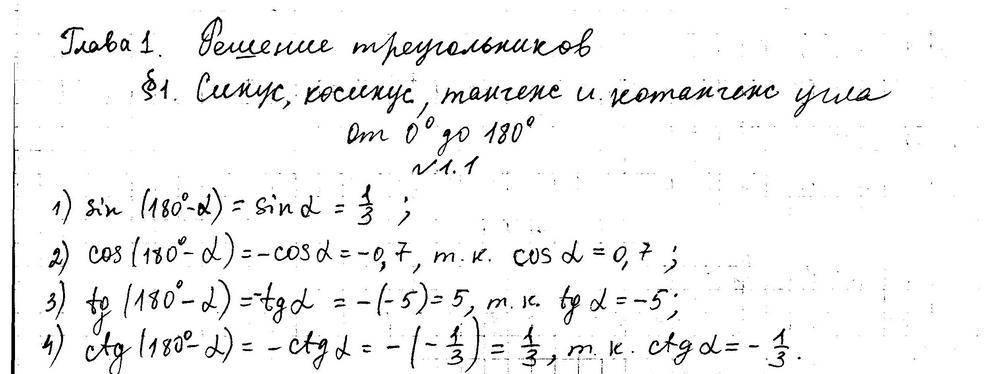 Глава 1. Решение треугольников
§1. Синус, косинус, тангенс и котангенс угла
от 0° до 180°
№1.1
1) sin (180°-α) = sin α = 1/3 ;
2) cos (180°-α) = -cos α = -0,7, т.к. cos α = 0,7 ;
3) tg (180°-α) = -tg α = -(-5) = 5, т.к. tg α = -5;
4) ctg (180°-α) = -ctg α = -(-1/3) = 1/3, т.к. ctg α = -1/3.